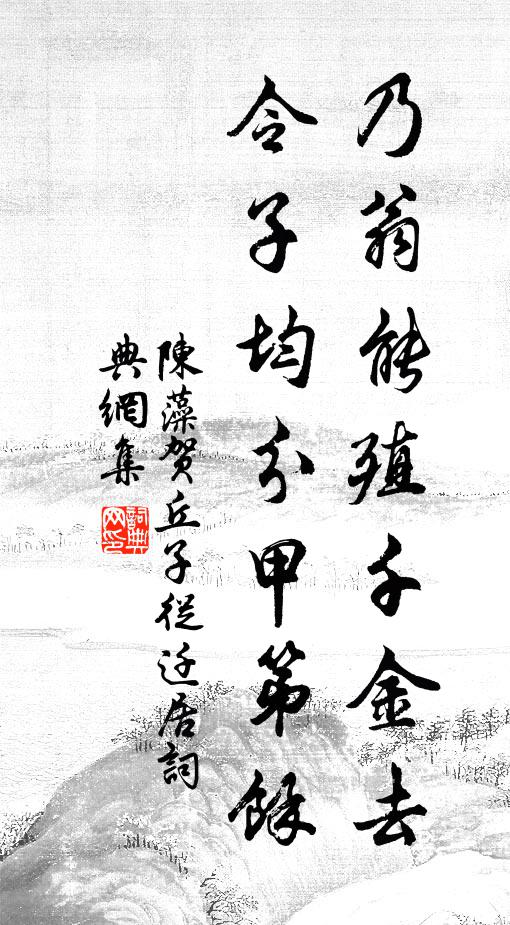 乃翁能殖千金去
令子均分甲第餘
陳藻賀丘子從迁居詞
典網集
詞典网印